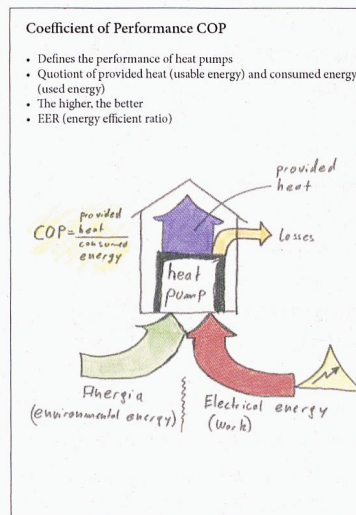 Coefficient of Performance COP
• Defines the performance of heat pumps
• Quotiont of provided heat (usable energy) and consumed energy
(used energy)
• The higher, the better
• EER (energy efficient ratio)
provided
heat
COP = provided heat / consumed energy
losses
heat
pump
Anergia
(environmental energy)
Electrical energy
(work)